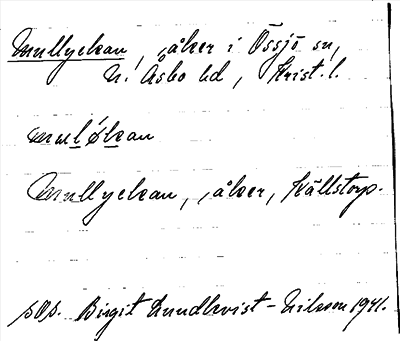 Mullyckan, åker i Össjö sn,
N. Åsbo hd, Krist. l.
muløkan
Mullyckan, åker, Källstorp.
Birgit Lundkvist-Nilsson 1941.